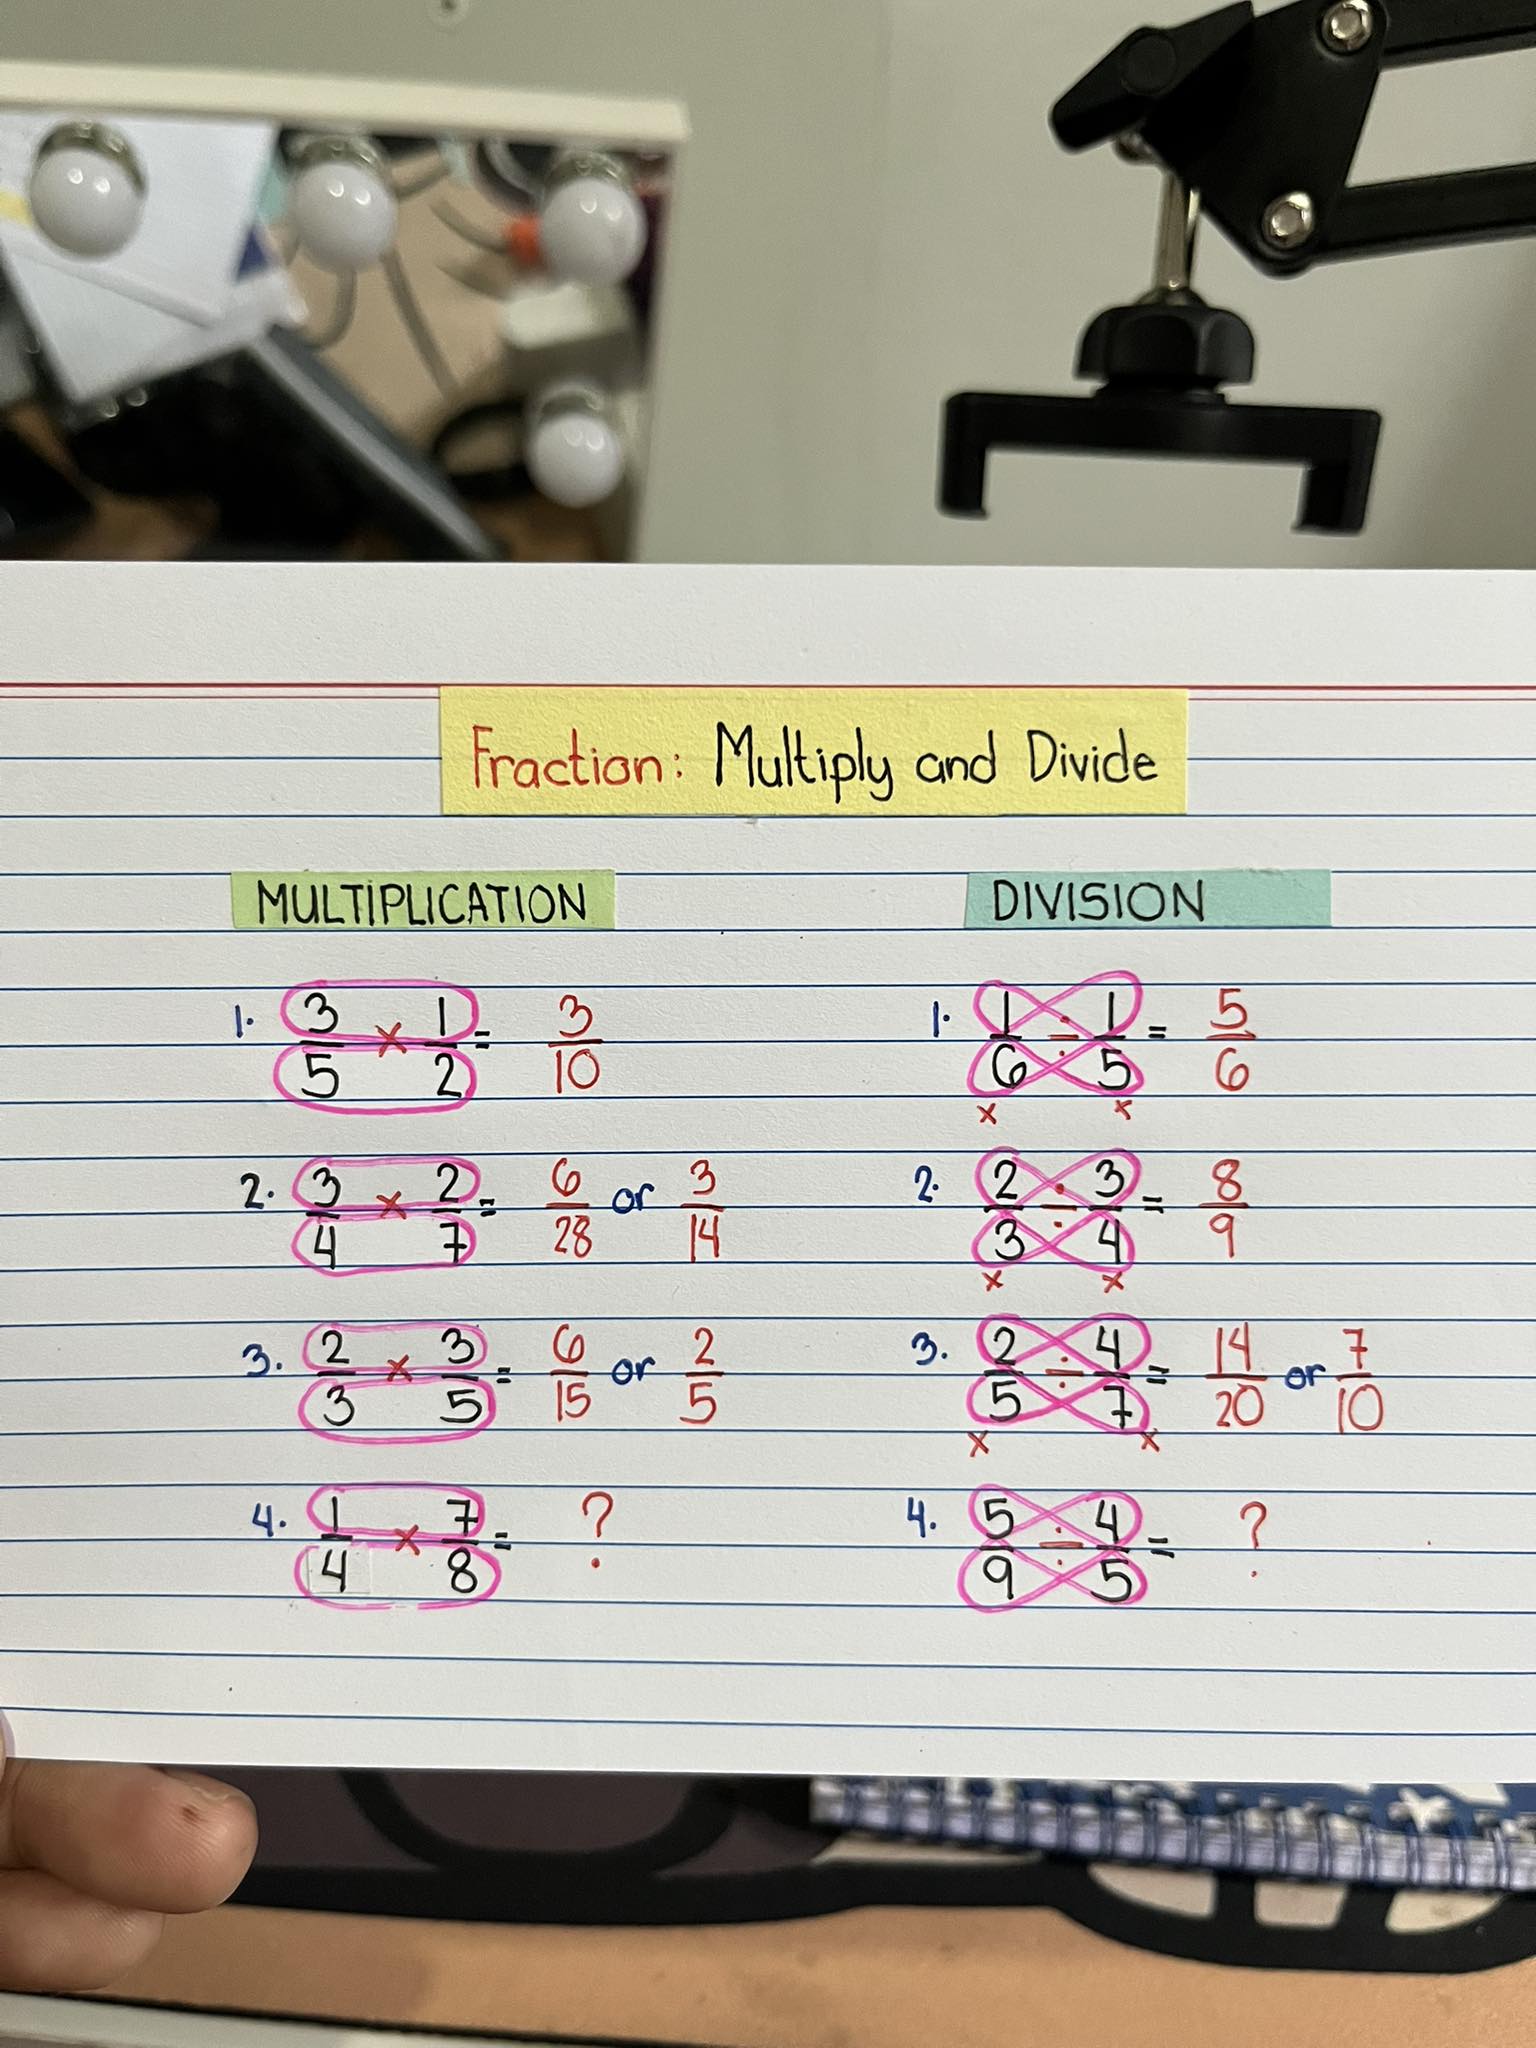 Fraction: Multiply and Divide
MULTIPLICATION
1. 3/5 × 1/2 = 3/10
2. 3/4 × 2/7 = 6/28 or 3/14
3. 2/3 × 3/5 = 6/15 or 2/5
4. 1/4 × 7/8 = ?
DIVISION
1. 1/6 ÷ 1/5 = 5/6
× ×
2. 2/3 ÷ 3/4 = 8/9
× ×
3. 2/5 ÷ 4/7 = 14/20 or 7/10
× ×
4. 5/9 ÷ 4/5 = ?